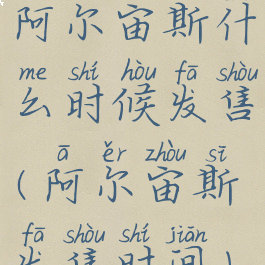 阿尔宙斯什
me shí hòu fā shòu
么时候发售
ā ěr zhòu sī
(阿尔宙斯
fā shòu shí jiān
发售时间)